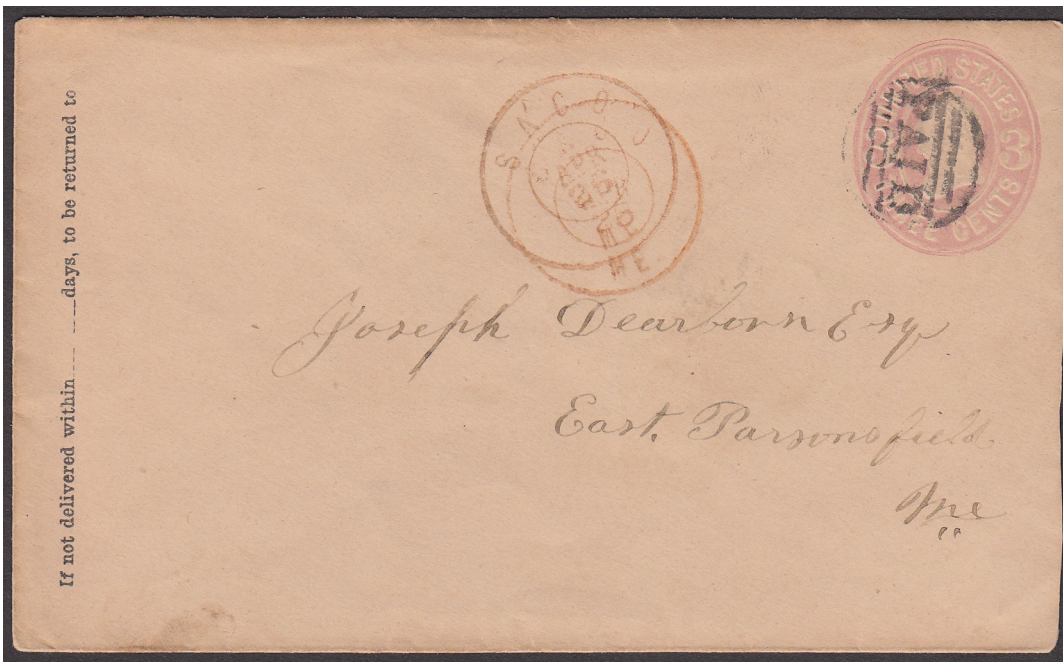 If not delivered within ___ ___ days, to be returned to
SACO
ME.
PAID
UNITED STATES
THREE CENTS
3
Joseph Dearborn Esq
East. Parsonsfield.
Me